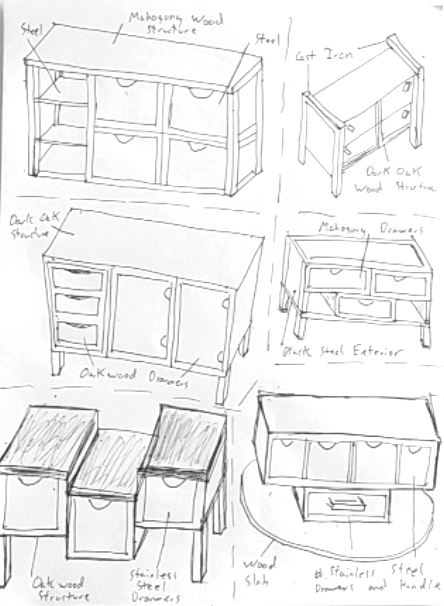 Mahogany Wood
Structure
Steel
Steel
Cast Iron
Dark Oak
Wood Structure
Dark Oak
Structure
Oak wood Drawers
Mahogany Drawers
Black Steel Exterior
Oak wood
Structure
Stainless
Steel
Drawers
Wood
Slab
Stainless Steel
Drawers and Handle